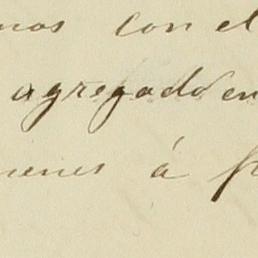 mos con el
agregado en
menes á